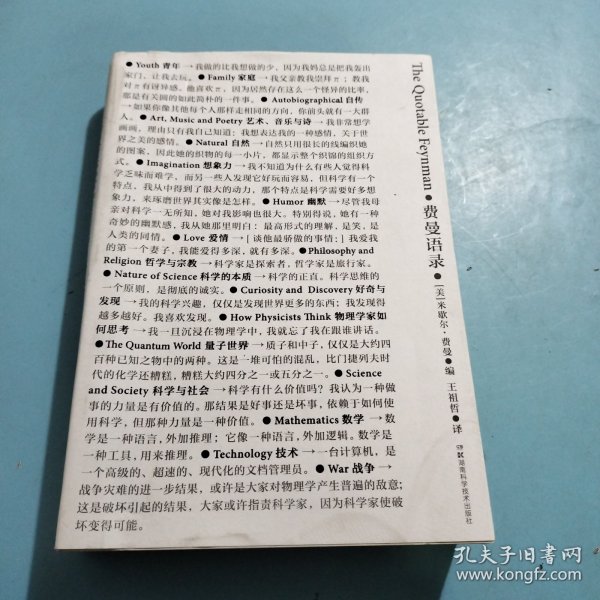 ● Youth 青年 → 我做的比我想做的少，因为我妈总是把我轰出
家门，让我去玩。● Family 家庭 → 我父亲教我崇拜 π；教我
对 π 有讶异感。他喜欢 π，因为居然存在这么一个怪异的比率，
那是有关圆的如此简朴的一件事。● Autobiographical 自传
→ 如果你像其他每个人那样走相同的方向，你前头就有一大群
人。● Art, Music and Poetry 艺术、音乐与诗 → 我非常想学
画画，理由只有我自己知道：我想表达我的一种感情，关于世
界之美的感情。● Natural 自然 → 自然只用很长的线编织她
的图案，因此她的织物的每一小片，都显示整个织锦的组织方
式。● Imagination 想象力 → 我不知道为什么有些人觉得科
学乏味而难学，而另一些人发现它好玩而容易，但科学有一个
特点，我从中得到了很大的动力，那个特点是科学需要好多想
象力，来琢磨世界其实像是怎样。● Humor 幽默 → 尽管我母
亲对科学一无所知，她对我影响也很大。特别得说，她有一种
奇妙的幽默感，我从她那里明白：最高形式的理解，是笑，是
人类的同情。● Love 爱情 → [谈他最骄傲的事情：] 我爱我
的第一个妻子，我能爱得多深，就有多深。● Philosophy and
Religion 哲学与宗教 → 科学家是探索者，哲学家是旅行家。
● Nature of Science 科学的本质 → 科学的正直。科学思维的
一个原则，是彻底的诚实。● Curiosity and Discovery 好奇与
发现 → 我的科学兴趣，仅仅是发现世界更多的东西；我发现得
越多越好。我喜欢发现。● How Physicists Think 物理学家如
何思考 → 我一旦沉浸在物理学中，我就忘了我在跟谁讲话。
● The Quantum World 量子世界 → 质子和中子，仅仅是大约四
百种已知之物中的两种。这是一堆可怕的混乱，比门捷列夫时
代的化学还糟糕，糟糕大约四分之一或五分之一。● Science
and Society 科学与社会 → 科学有什么价值吗？我认为一种做
事的力量是有价值的。那结果是好事还是坏事，依赖于如何使
用科学，但那种力量是一种价值。● Mathematics 数学 → 数
学是一种语言，外加推理；它像一种语言，外加逻辑。数学是
一种工具，用来推理。● Technology 技术 → 一台计算机，是
一个高级的、超速的、现代化的文档管理员。● War 战争 →
战争灾难的进一步结果，或许是大家对物理学产生普遍的敌意；
这是破坏引起的结果，大家或许指责科学家，因为科学家使破
坏变得可能。
The Quotable Feynman ● 费曼语录 ● [美] 米歇尔·费曼 ● 编 王祖哲 ● 译
湖南科学技术出版社
孔夫子旧书网
www.kongfz.com